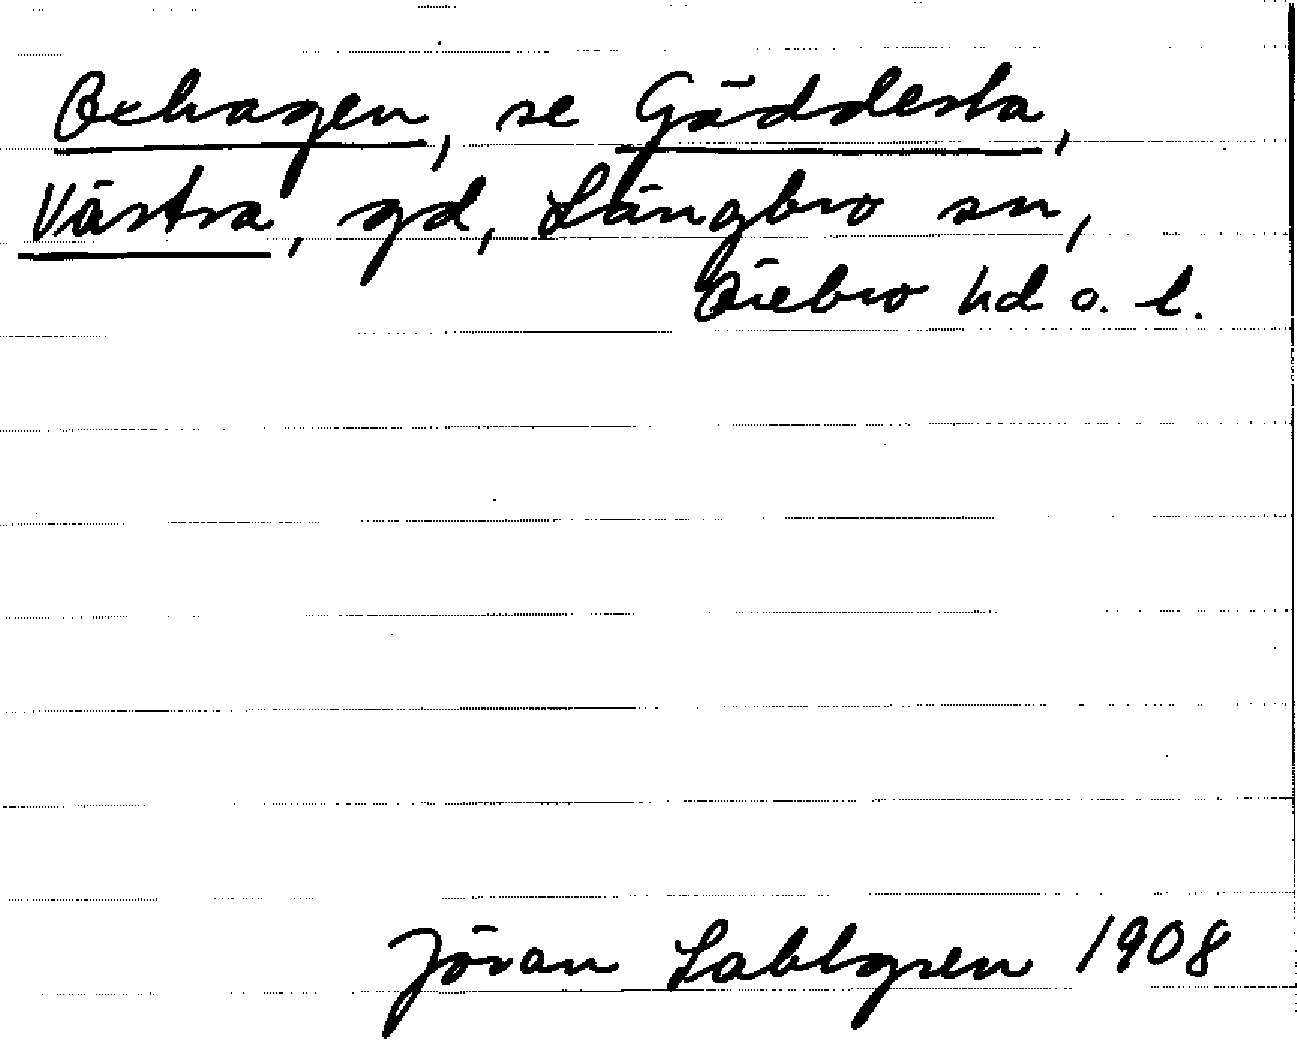 Behagen, se Gäddesta,
Västra, gd, Längbro sn,
Örebro hd o. l.
Jöran Sahlgren 1908